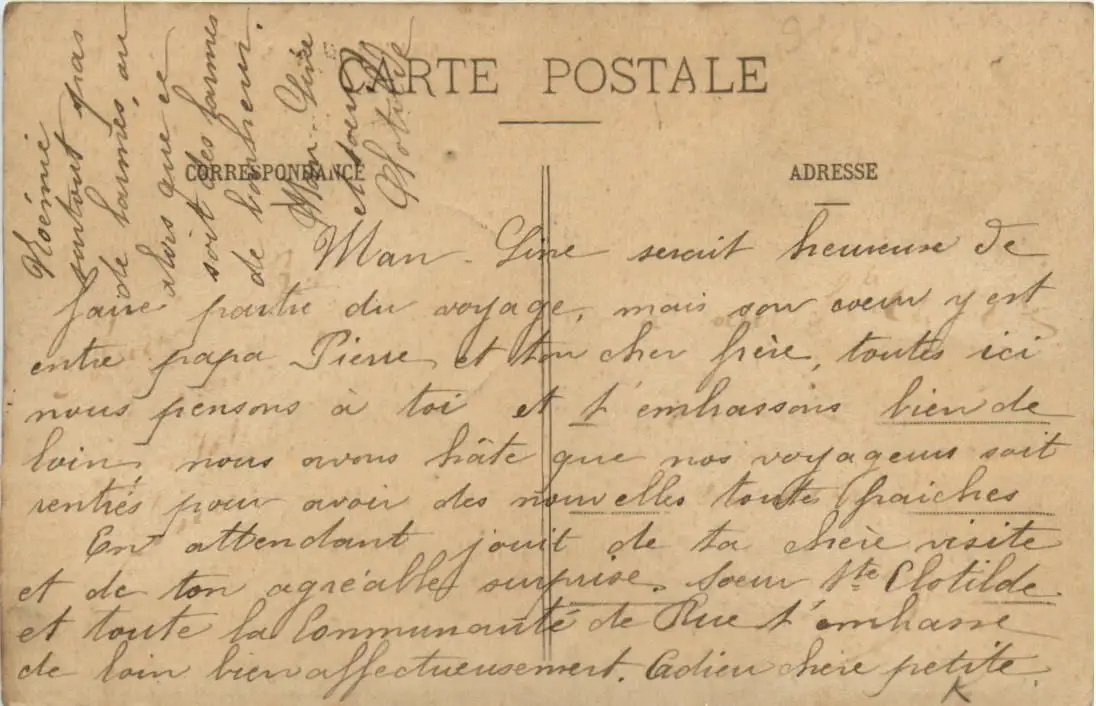 CARTE POSTALE
CORRESPONDANCE
ADRESSE
Man-Line serait heureuse de
faire partie du voyage, mais son coeur y est
entre papa Pierre et ton cher frère, toutes ici
nous pensons à toi et t'embrassons bien de
loin, nous avons hâte que nos voyageurs soit
rentrés pour avoir des nouvelles toutes fraiches
En attendant jouit de ta chère visite
et de ton agréable surprise. Soeur Ste Clotilde.
et toute la Communauté de Rue t'embrasse
de loin bien affectueusement. Adieu chère petite.
Noémie
surtout pas
de larmes, ou
alors que ce
soit des larmes
de bonheur.
Man-Line
et soeur
Clotilde